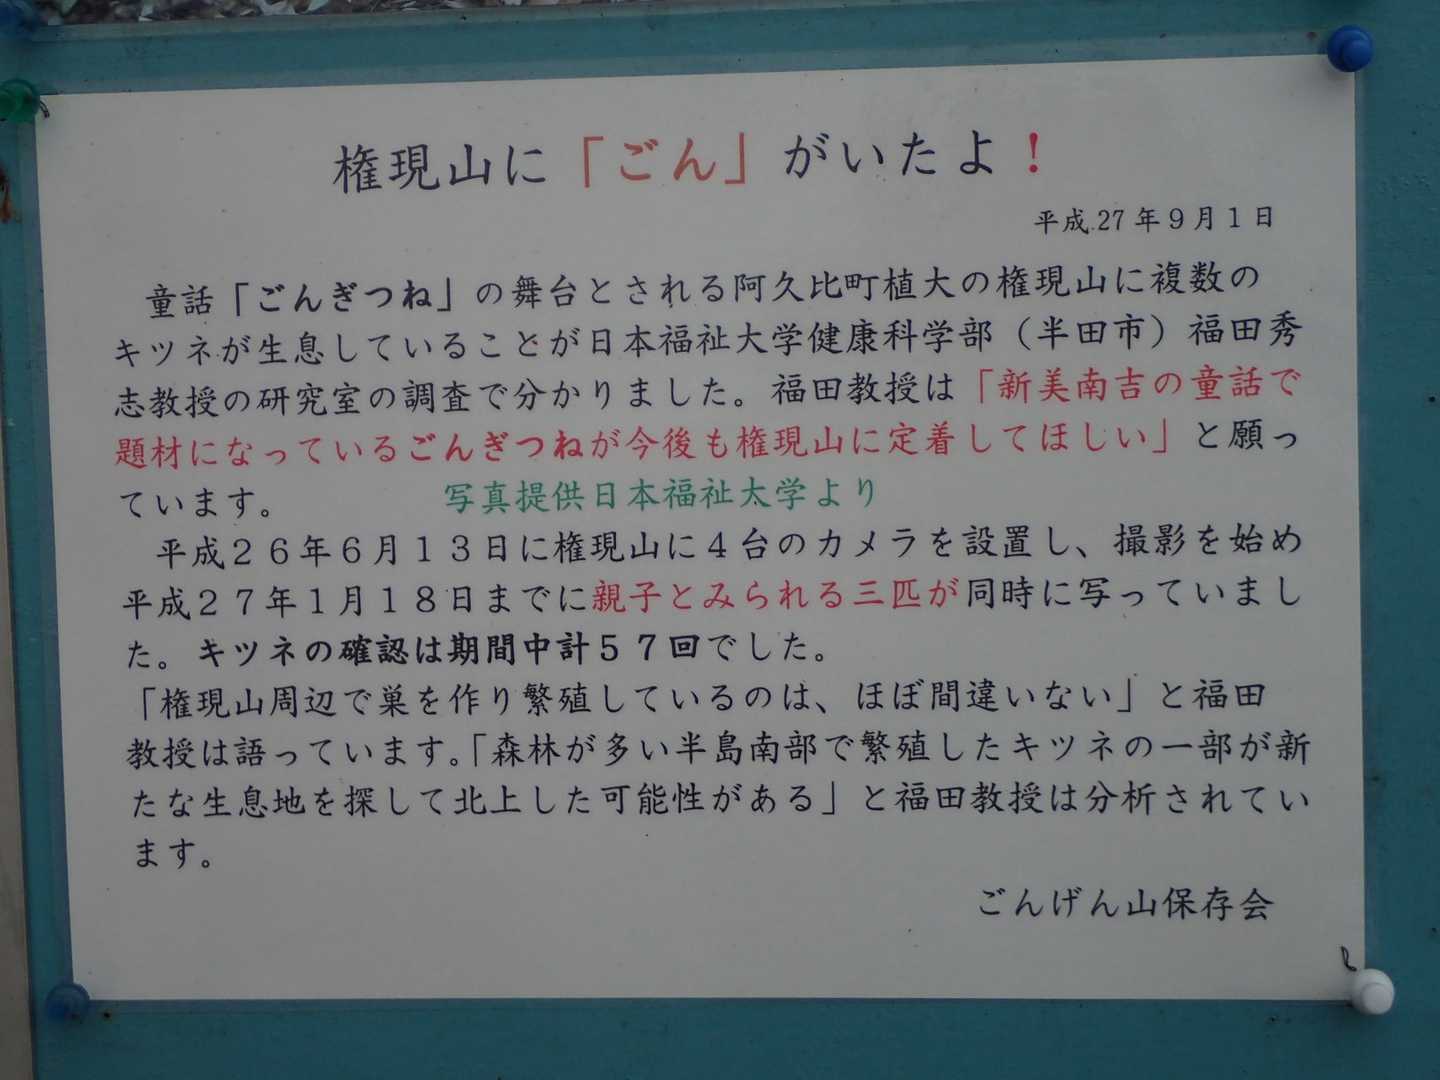 権現山に「ごん」がいたよ！
平成27年９月１日
童話「ごんぎつね」の舞台とされる阿久比町植大の権現山に複数の
キツネが生息していることが日本福祉大学健康科学部（半田市）福田秀
志教授の研究室の調査で分かりました。福田教授は「新美南吉の童話で
題材になっているごんぎつねが今後も権現山に定着してほしい」と願っ
ています。 写真提供日本福祉大学より
平成２６年６月１３日に権現山に４台のカメラを設置し、撮影を始め
平成２７年１月１８日までに親子とみられる三匹が同時に写っていまし
た。キツネの確認は期間中計５７回でした。
「権現山周辺で巣を作り繁殖しているのは、ほぼ間違いない」と福田
教授は語っています。「森林が多い半島南部で繁殖したキツネの一部が新
たな生息地を探して北上した可能性がある」と福田教授は分析されてい
ます。
ごんげん山保存会